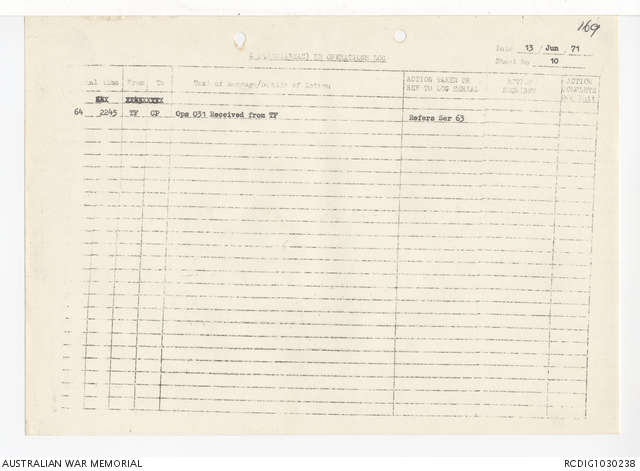 169
Date 13 / Jun / 71
Sheet No 10
OPERATIONS LOG
Time From To Text of Message/Details of Action ACTION TAKEN OR REF TO LOG SERIAL ACTION ACTION COMPLETE
64 2245 TF CP Ops 031 Received from TF Refers Ser 63
AUSTRALIAN WAR MEMORIAL
RCDIG1030238